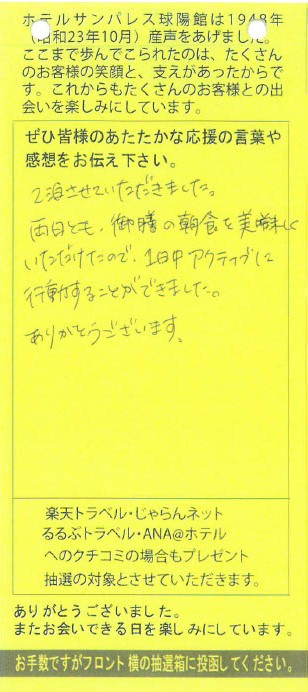 ホテルサンパレス球陽館は1948年
（昭和23年10月）産声をあげました。
ここまで歩んでこられたのは、たくさん
のお客様の笑顔と、支えがあったからで
す。これからもたくさんのお客様との出
会いを楽しみにしています。
ぜひ皆様のあたたかな応援の言葉や
感想をお伝え下さい。
2泊させていただきました。
両日とも、御膳の朝食を美味しく
いただけたので、1日中アクティブに
行動することができました。
ありがとうございます。
楽天トラベル・じゃらんネット
るるぶトラベル・ANA@ホテル
へのクチコミの場合もプレゼント
抽選の対象とさせていただきます。
ありがとうございました。
またお会いできる日を楽しみにしています。
お手数ですがフロント横の抽選箱に投函してください。